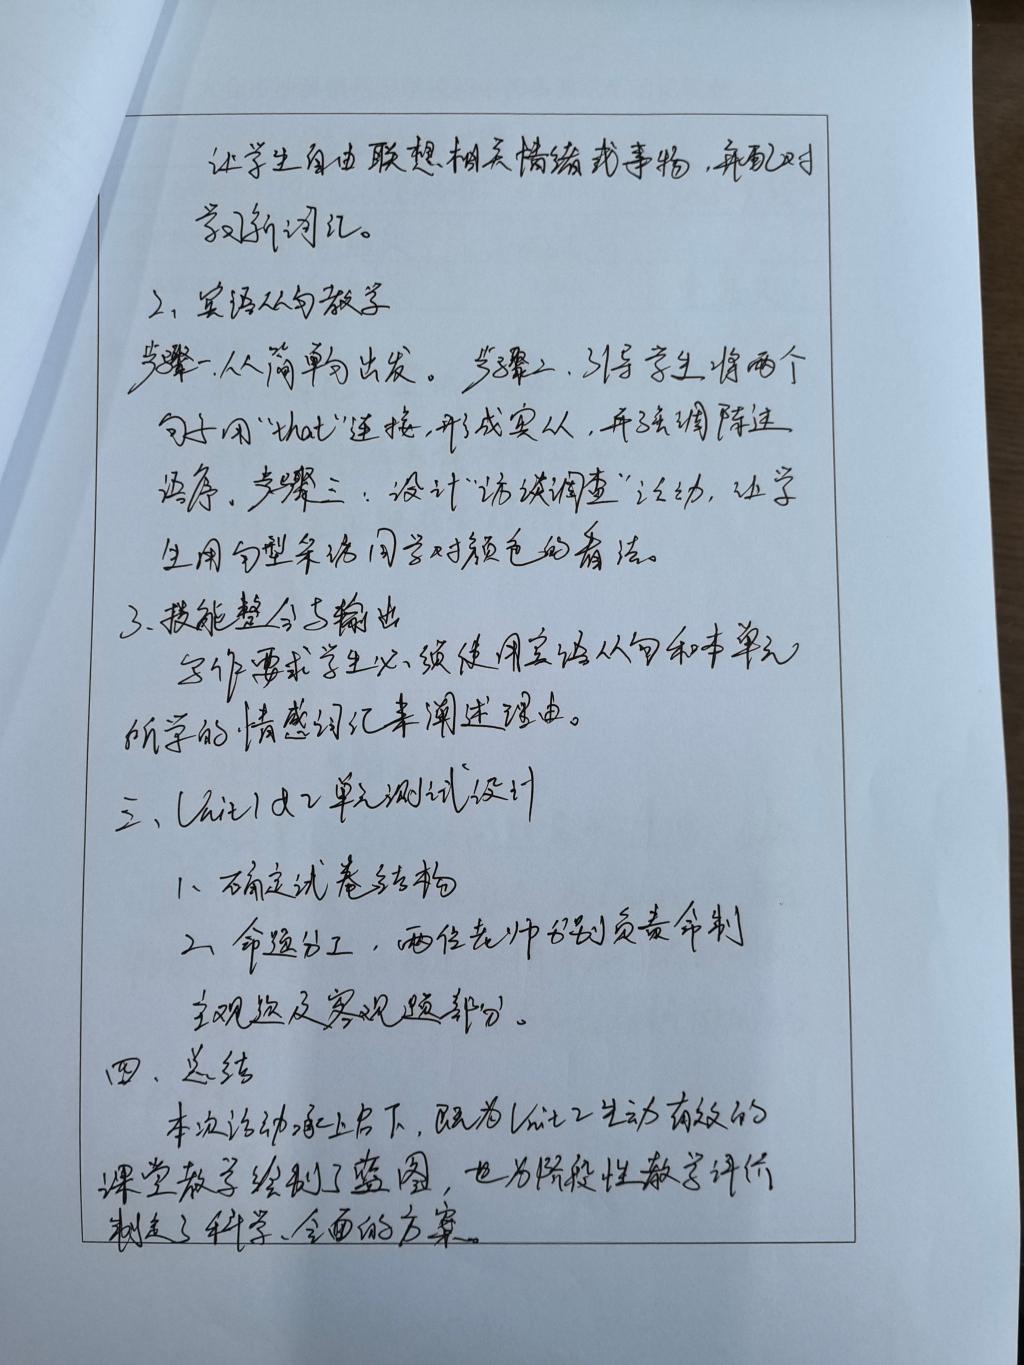 让学生自由联想相关情绪或事物，并配对
学习新词汇。
2、宾语从句教学
步骤一、从简单句出发。 步骤二、引导学生将两个
句子用“that”连接，形成宾从，并强调陈述
语序。步骤三：设计“访谈调查”活动，让学
生用句型采访同学对颜色的看法。
3、技能整合与输出
写作要求学生必须使用宾语从句和本单元
所学的情感词汇来阐述理由。
三、Unit1 & 2 单元测试设计
1、确定试卷结构
2、命题分工，两位老师分别负责命制
主观题及客观题部分。
四、总结
本次活动承上启下，既为Unit2生动有效的
课堂教学绘制了蓝图，也为阶段性教学评价
制定了科学、全面的方案。